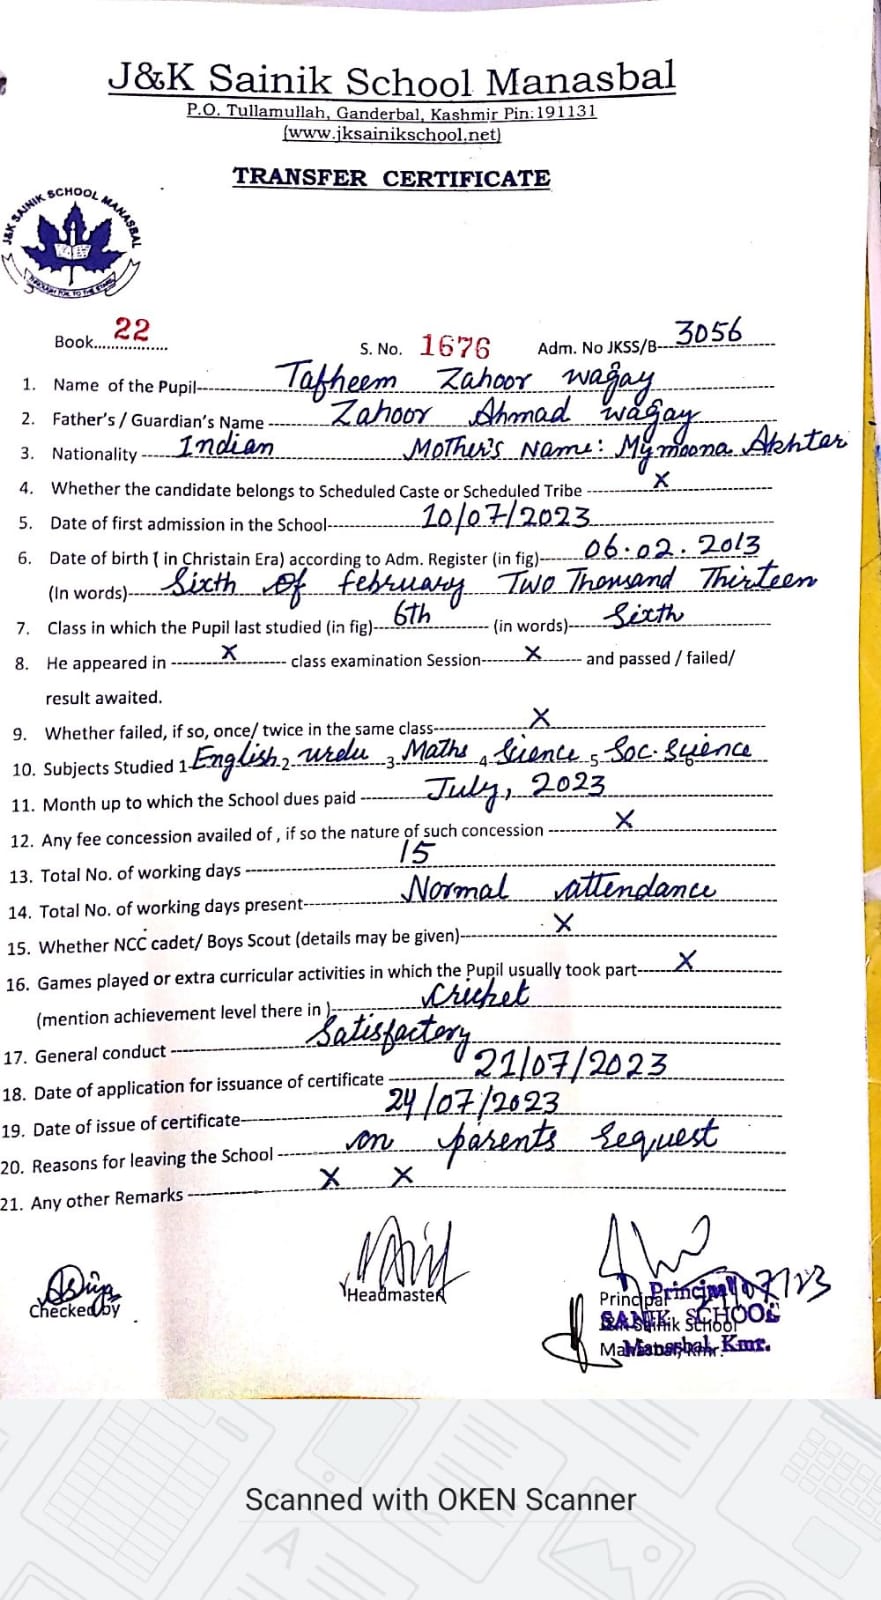 J&K Sainik School Manasbal
P.O. Tullamullah, Ganderbal, Kashmir Pin:191131
(www.jksainikschool.net)
TRANSFER CERTIFICATE
J&K SAINIK SCHOOL MANASBAL
Book......22...... S. No. 1676 Adm. No JKSS/B---3056
1. Name of the Pupil---Tafheem Zahoor wagay
2. Father's / Guardian's Name---Zahoor Ahmad wagay
3. Nationality---Indian Mother's Name: Mymoona Akhter
4. Whether the candidate belongs to Scheduled Caste or Scheduled Tribe---X
5. Date of first admission in the School---10/07/2023
6. Date of birth ( in Christain Era) according to Adm. Register (in fig)---06.02.2013
(In words)---Sixth of february Two Thousand Thirteen
7. Class in which the Pupil last studied (in fig)---6th--- (in words)---Sixth
8. He appeared in ---X--- class examination Session---X--- and passed / failed/
result awaited.
9. Whether failed, if so, once/ twice in the same class---X
10. Subjects Studied 1 English 2 urdu 3 Maths 4 Science 5 Soc. Science
11. Month up to which the School dues paid ---July, 2023
12. Any fee concession availed of , if so the nature of such concession ---X
13. Total No. of working days ---15
14. Total No. of working days present---Normal attendance
15. Whether NCC cadet/ Boys Scout (details may be given)---X
16. Games played or extra curricular activities in which the Pupil usually took part---X
(mention achievement level there in )---Cricket
17. General conduct ---Satisfactory
18. Date of application for issuance of certificate ---21/07/2023
19. Date of issue of certificate---24/07/2023
20. Reasons for leaving the School ---on parents request
21. Any other Remarks ---X X
Checked by Headmaster Principal
Principal
SANIK SCHOOL
Manasbal, Kmr.
Scanned with OKEN Scanner